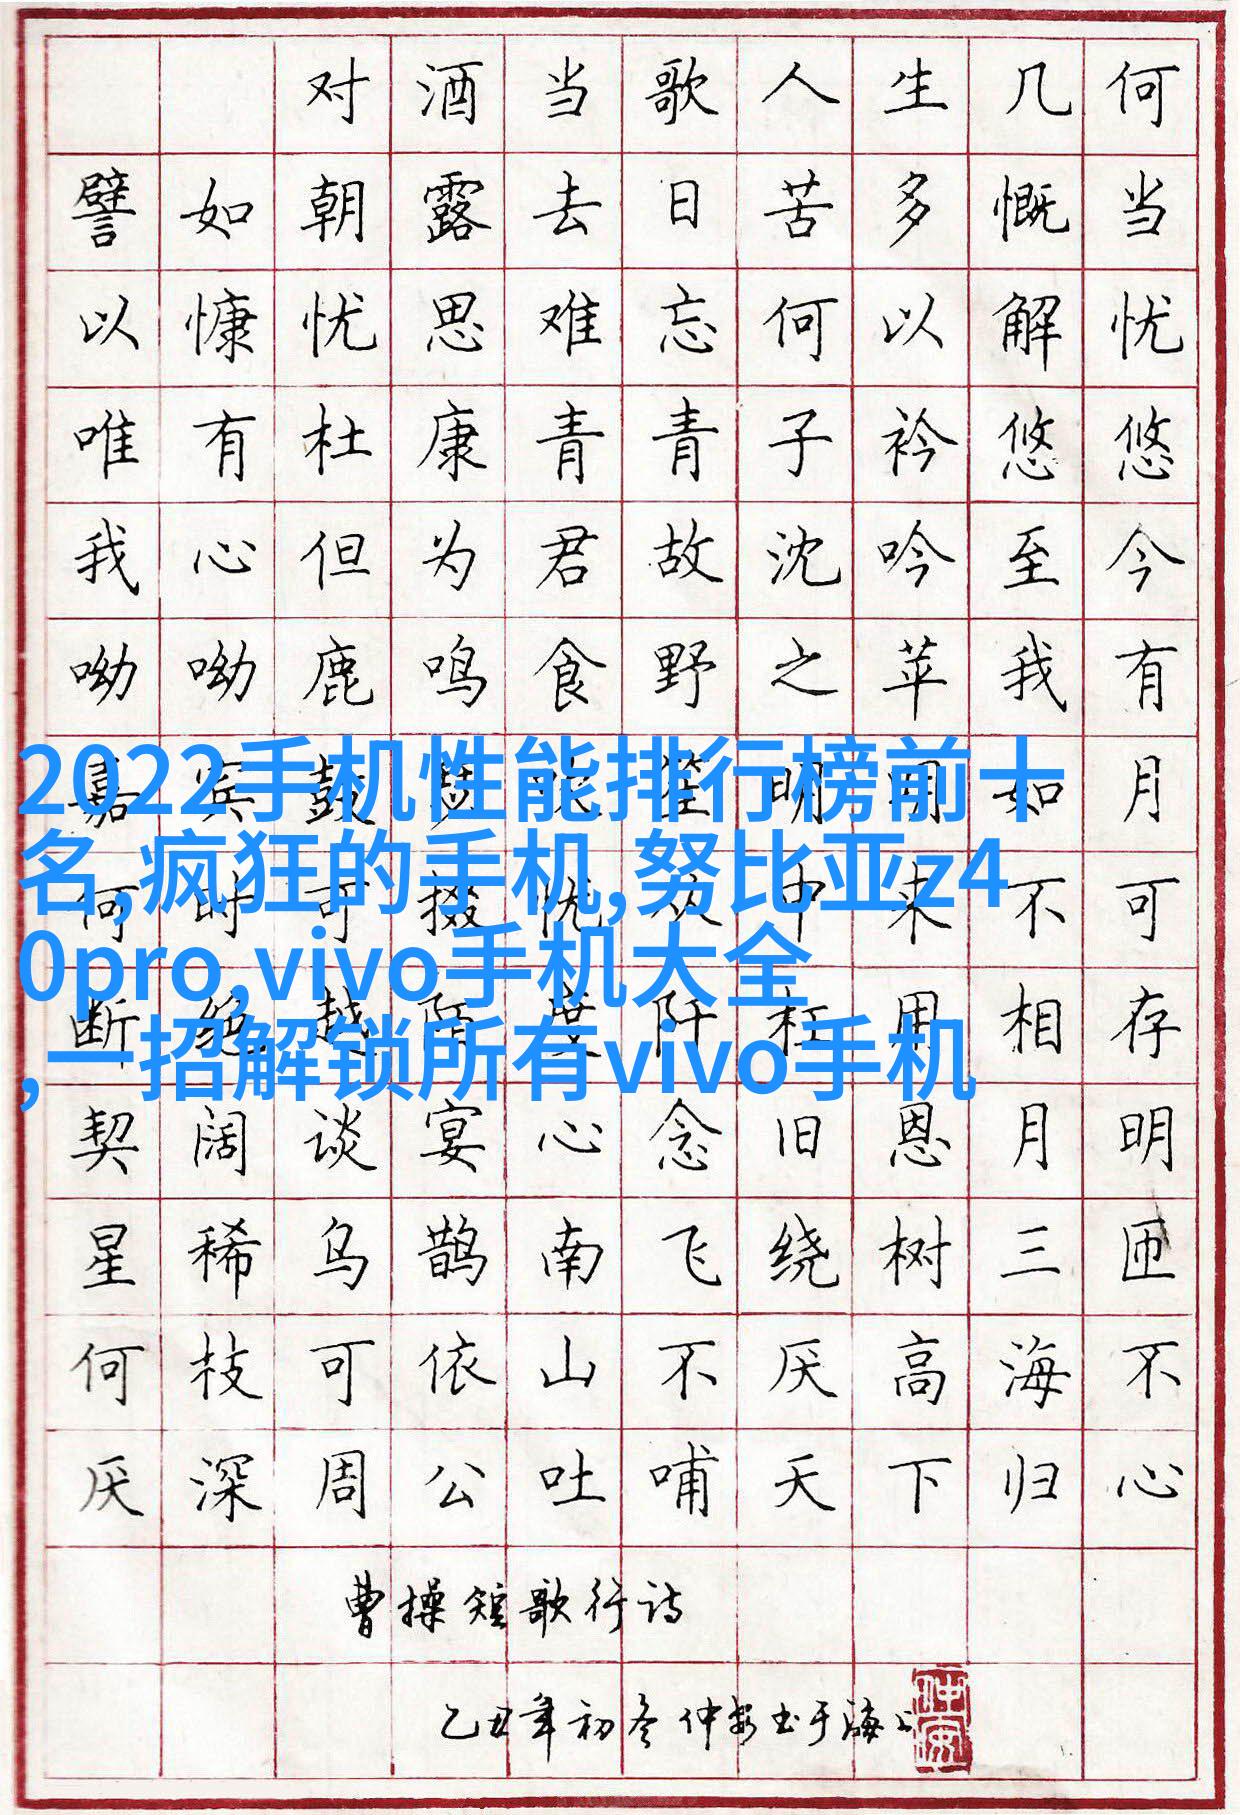 对酒当歌人生几何
譬如朝露去日苦多慨当
以慷忧思难忘何以解忧
唯有杜康青青子衿悠悠
我心但为君故沈吟至今
呦呦鹿鸣食野之苹我有
嘉宾鼓瑟吹笙明明如月
何时可掇忧从中来不可
断绝越陌度阡枉用相存
契阔谈宴心念旧恩月明
星稀乌鹊南飞绕树三匝
何枝可依山不厌高海不
厌深周公吐哺天下归心
曹操短歌行诗
乙丑年初冬仲安书于海上
仲安
2022手机性能排行榜前十
名,疯狂的手机,努比亚z4
0pro,vivo手机大全
,一招解锁所有vivo手机